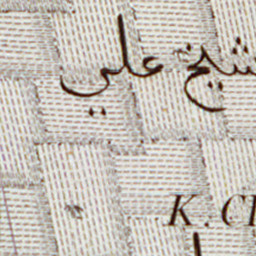 شيخ علي
K. Cl